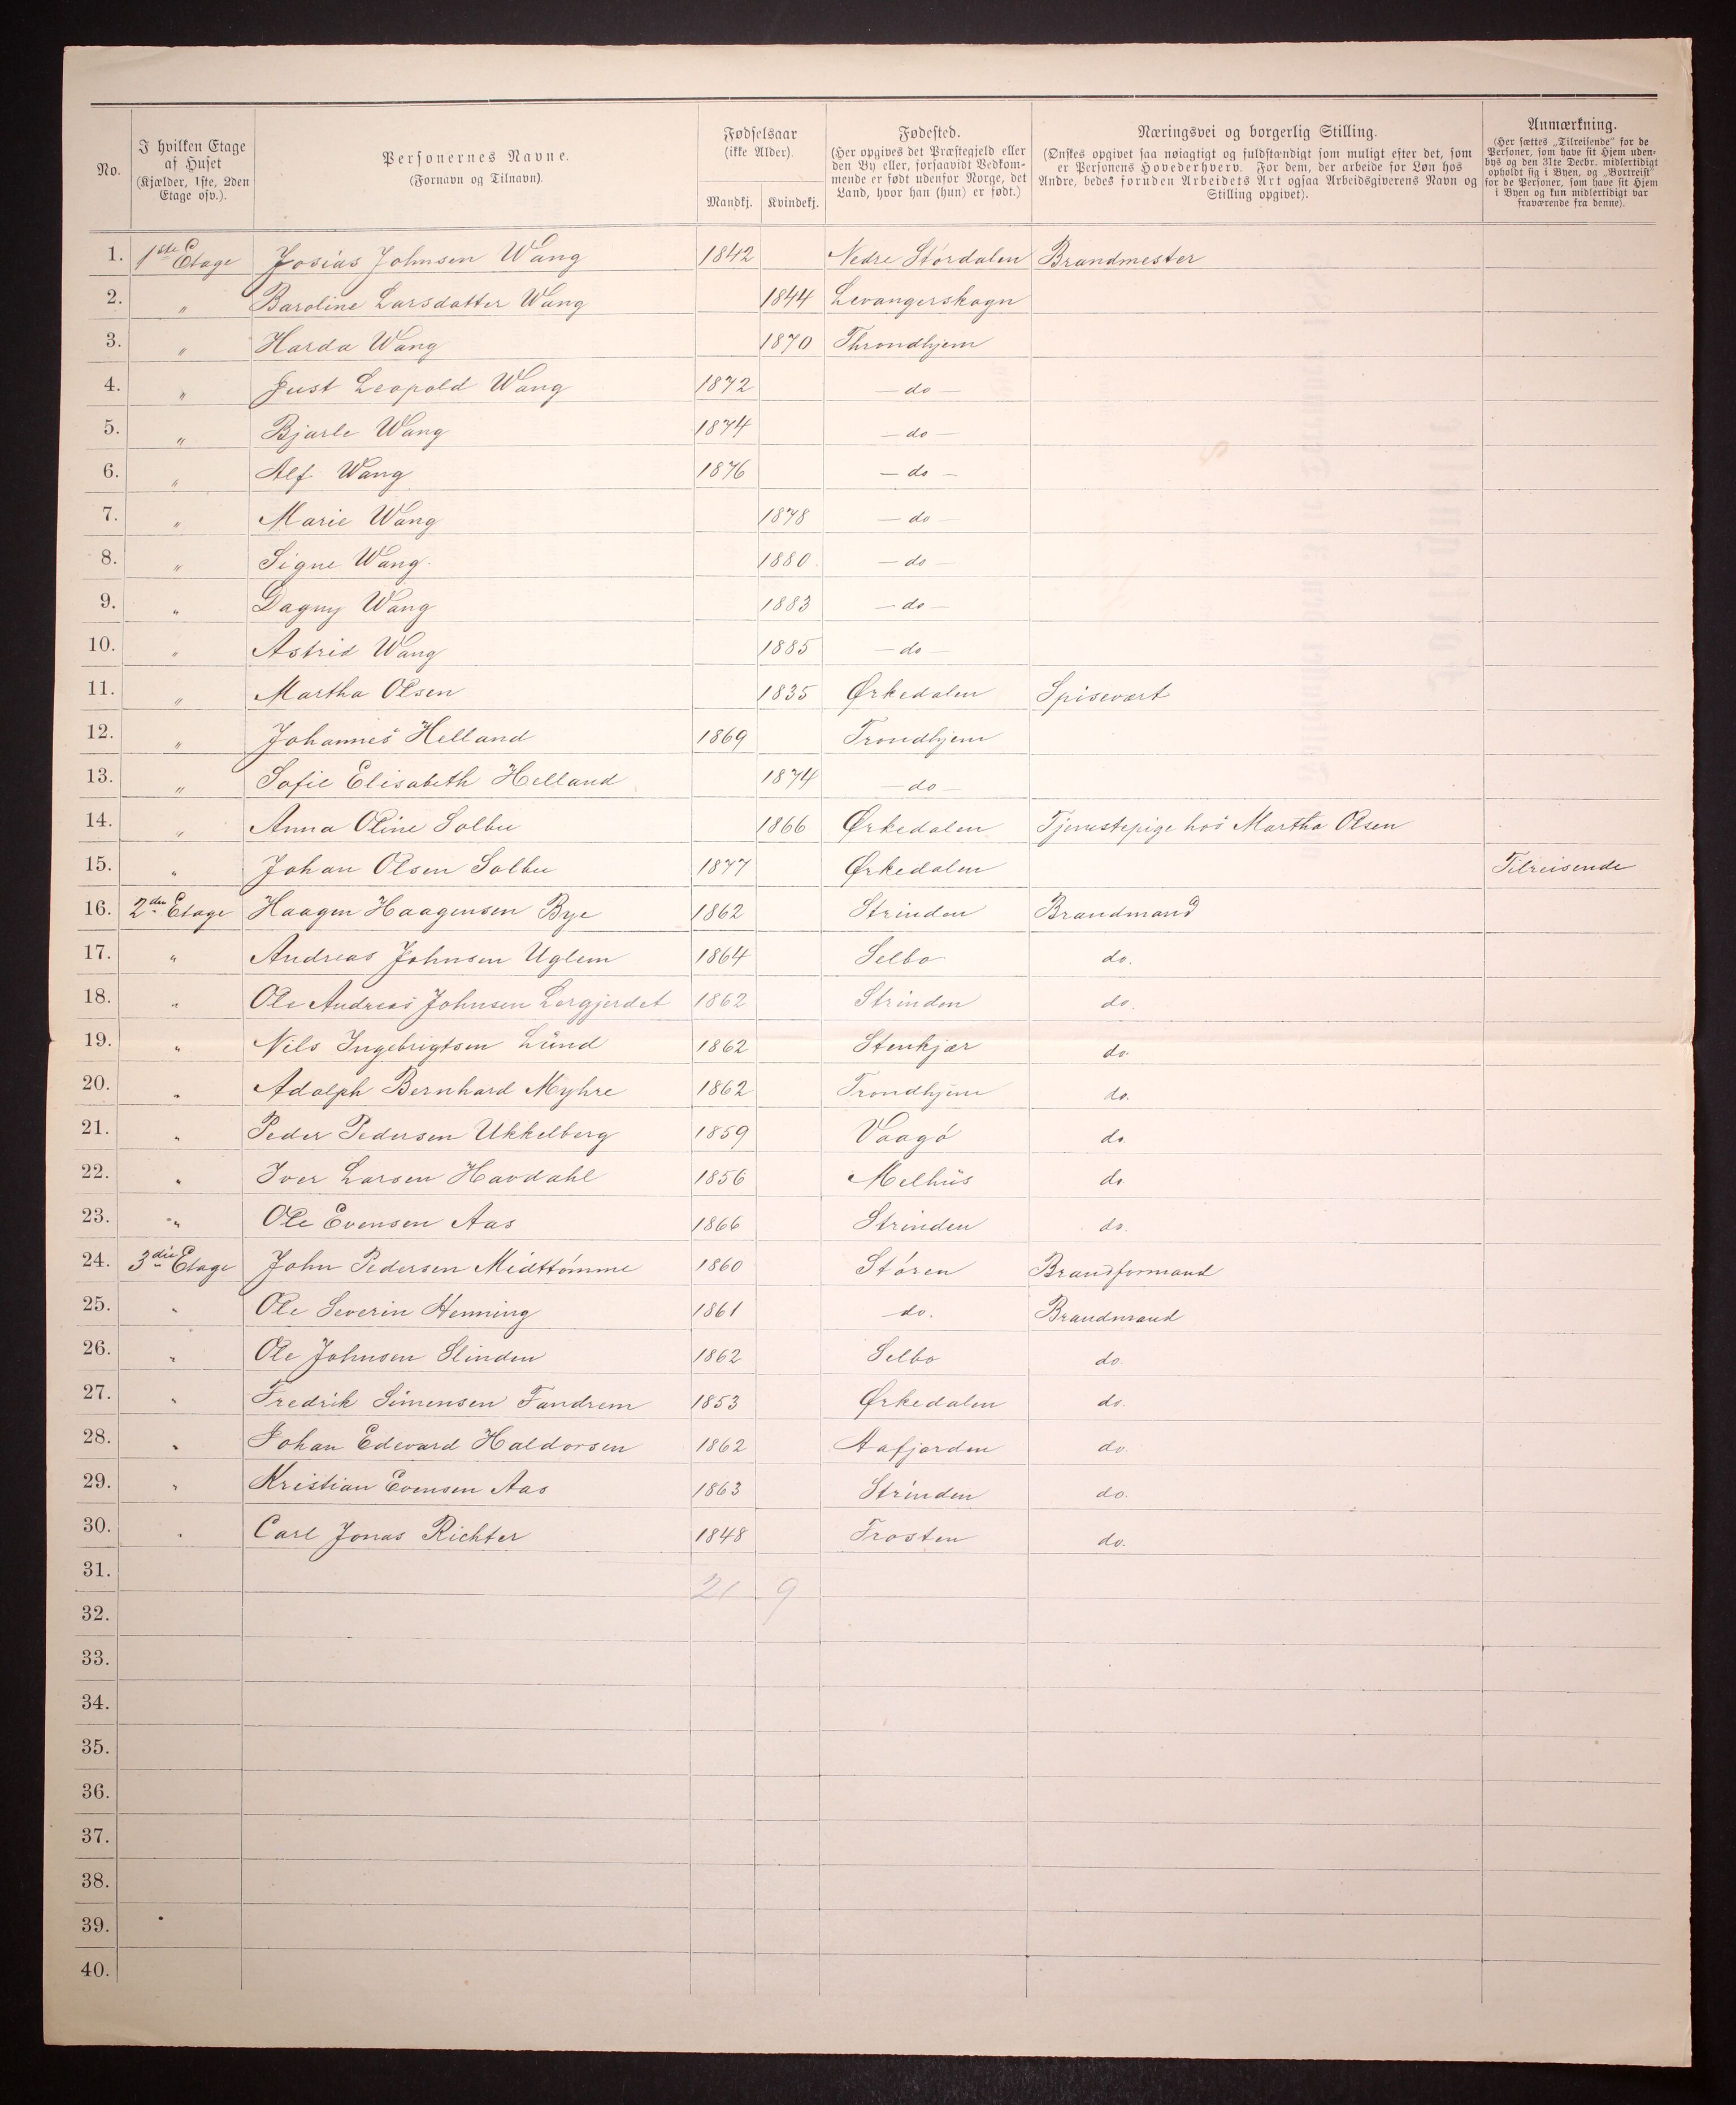 No.
I hvilken Etage af Huset (Kjælder, 1ste, 2den Etage osv.).
Personernes Navne. (Fornavn og Tilnavn).
Fødselsaar (ikke Alder).
Mandkj. Kvindekj.
Fødested. (Her opgives det Præstegjeld eller den By eller, forsaavidt Vedkommende er født udenfor Norge, det Land, hvor han (hun) er født.)
Næringsvei og borgerlig Stilling. (Ønskes opgivet saa nøiagtigt og fuldstændigt som muligt efter det, som er Personens Hovederhverv. For dem, der arbeide for Løn hos Andre, bedes foruden Arbeidets Art ogsaa Arbeidsgiverens Navn og Stilling opgivet).
Anmærkning. (Her sættes „Tilreisende“ for de Personer, som have sit Hjem udenbys og den 31te Decbr. midlertidigt opholdt sig i Byen, og „Bortreist“ for de Personer, som have sit Hjem i Byen og kun midlertidigt var fraværende fra denne).
1. 1ste Etage Josias Johnsen Wang 1842 Nedre Stördalen Brandmester
2. " Baroline Larsdatter Wang 1844 Levangerskogn
3. " Harda Wang 1870 Throndhjem
4. " Just Leopold Wang 1872 — do —
5. " Bjarle Wang 1874 — do —
6. " Alf Wang 1876 — do —
7. " Marie Wang 1878 — do —
8. " Signe Wang. 1880 — do —
9. " Dagny Wang 1883 — do —
10. " Astrid Wang 1885 — do —
11. " Martha Olsen 1835 Ørkedalen Spisevært
12. " Johannes Helland 1869 Trondhjem
13. " Sofie Elisabeth Helland 1874 — do —
14. " Anna Oline Solbu 1866 Ørkedalen Tjenestepige hos Martha Olsen
15. " Johan Olsen Solbu 1877 Ørkedalen Tilreisende
16. 2den Etage Haagen Haagensen Bye 1862 Strinden Brandmand
17. " Andreas Johnsen Uglem 1864 Selbo do.
18. " Ole Andreas Johnsen Lergjerdet 1862 Strinden do.
19. " Nils Ingebrigtsen Lund 1862 Stenkjær do.
20. " Adolph Bernhard Myhre 1862 Trondhjem do.
21. " Peder Pedersen Ukkelberg 1859 Vaagö do
22. " Iver Larsen Havdahl 1856 Melhus do
23. " Ole Evensen Aas 1866 Strinden do.
24. 3die Etage John Pedersen Midttömme 1860 Stören Brandformand
25. " Ole Severin Henning 1861 do. Brandmand
26. " Ole Johnsen Slinden 1862 Selbo do.
27. " Fredrik Simensen Fandrem 1853 Ørkedalen do.
28. " Johan Edevard Haldorsen 1862 Aafjorden do.
29. " Kristian Evensen Aas 1863 Strinden do.
30. " Carl Jonas Richter 1848 Frosten do.
31. 21 9
32.
33.
34.
35.
36.
37.
38.
39.
40.